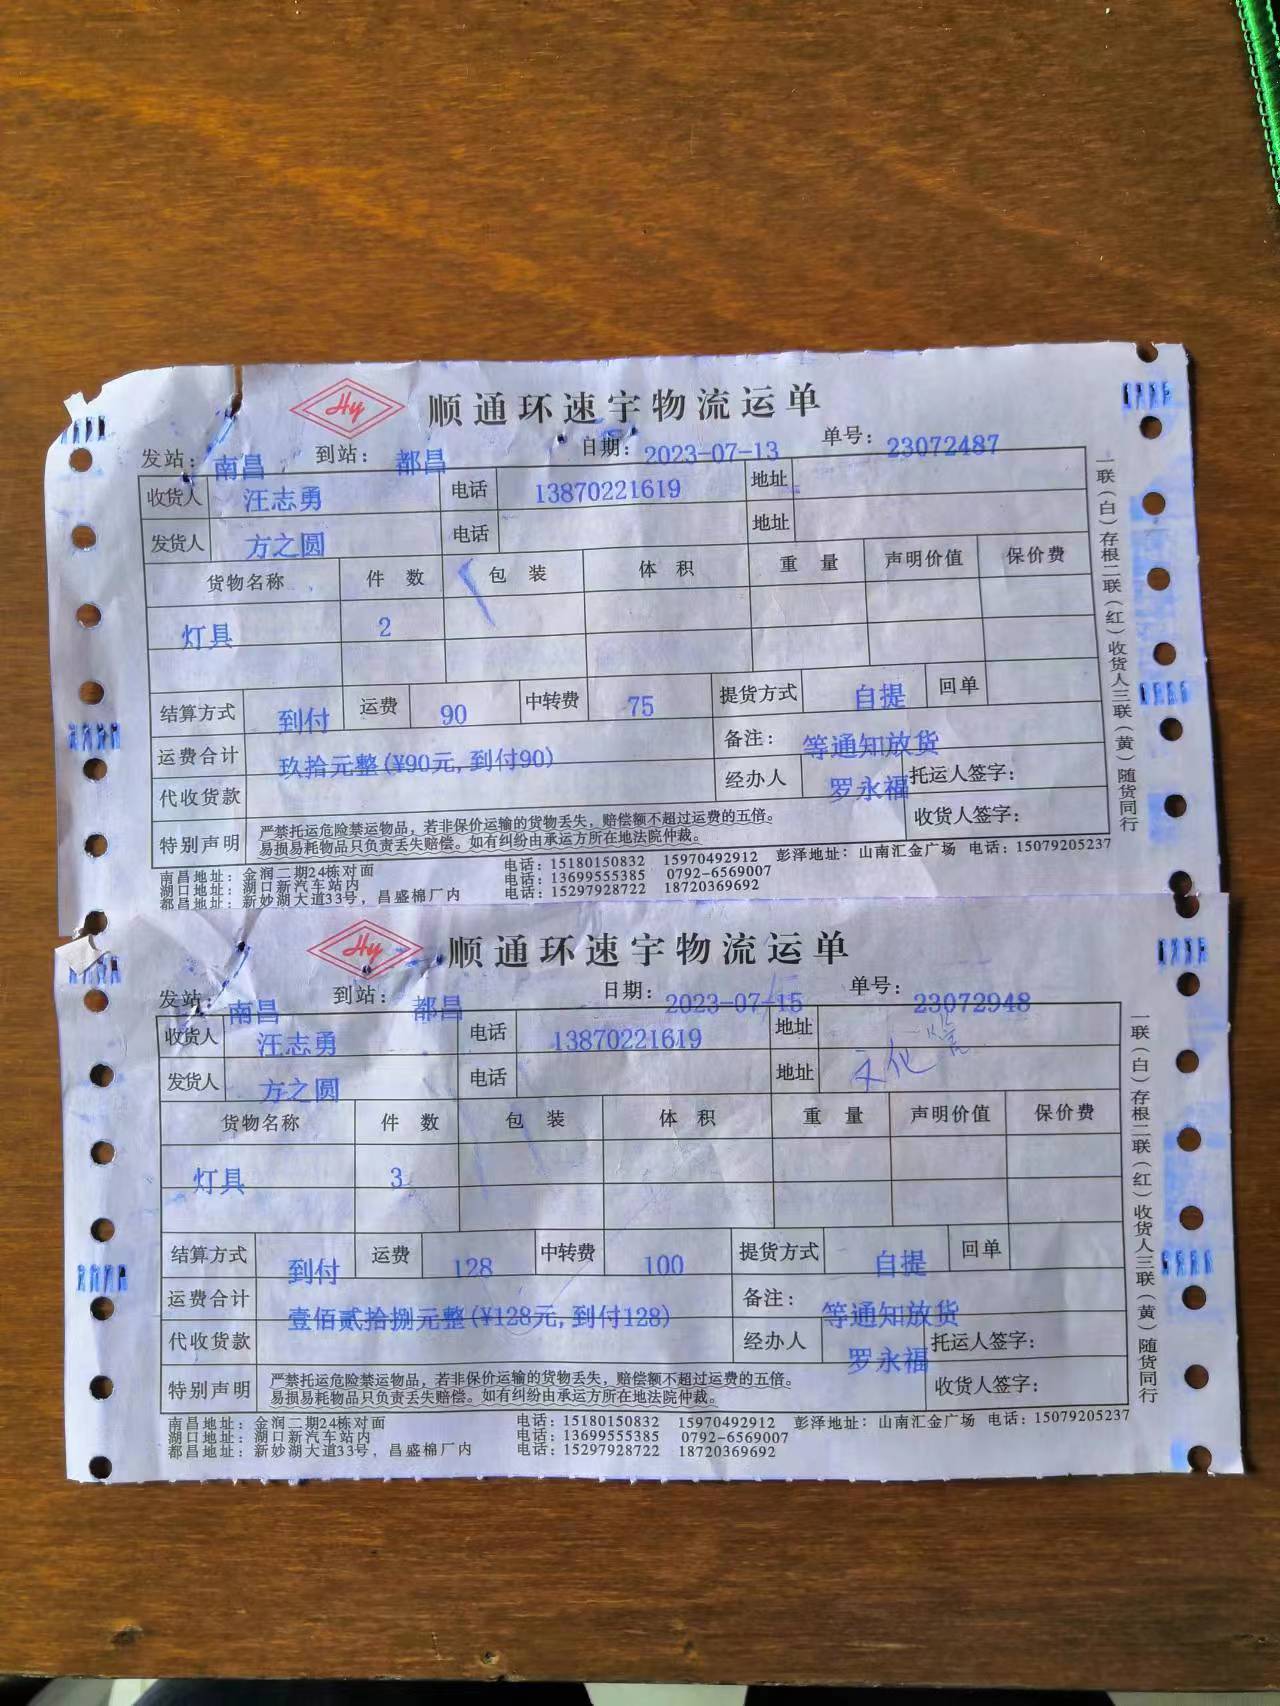 Hy 顺通环速宇物流运单
发站： 南昌 到站： 都昌 日期： 2023-07-13 单号： 23072487
收货人 汪志勇 电话 13870221619 地址
发货人 方之圆 电话 地址
货物名称 件 数 包 装 体 积 重 量 声明价值 保价费
灯具 2
结算方式 到付 运费 90 中转费 75 提货方式 自提 回单
运费合计 玖拾元整(¥90元,到付90) 备注： 等通知放货
代收货款 经办人 罗永福 托运人签字：
特别声明 严禁托运危险禁运物品，若非保价运输的货物丢失，赔偿额不超过运费的五倍。 收货人签字：
易损易耗物品只负责丢失赔偿。如有纠纷由承运方所在地法院仲裁。
南昌地址：金润二期24栋对面 电话：15180150832 15970492912 彭泽地址：山南汇金广场 电话：15079205237
湖口地址：湖口新汽车站内 电话：13699555385 0792-6569007
都昌地址：新妙湖大道33号，昌盛棉厂内 电话：15297928722 18720369692
一联(白)存根二联(红)收货人三联(黄)随货同行
Hy 顺通环速宇物流运单
发站： 南昌 到站： 都昌 日期： 2023-07-15 单号： 23072948
收货人 汪志勇 电话 13870221619 地址
发货人 方之圆 电话 地址 文化
货物名称 件 数 包 装 体 积 重 量 声明价值 保价费
灯具 3
结算方式 到付 运费 128 中转费 100 提货方式 自提 回单
运费合计 壹佰贰拾捌元整(¥128元,到付128) 备注： 等通知放货
代收货款 经办人 罗永福 托运人签字：
特别声明 严禁托运危险禁运物品，若非保价运输的货物丢失，赔偿额不超过运费的五倍。 收货人签字：
易损易耗物品只负责丢失赔偿。如有纠纷由承运方所在地法院仲裁。
南昌地址：金润二期24栋对面 电话：15180150832 15970492912 彭泽地址：山南汇金广场 电话：15079205237
湖口地址：湖口新汽车站内 电话：13699555385 0792-6569007
都昌地址：新妙湖大道33号，昌盛棉厂内 电话：15297928722 18720369692
一联(白)存根二联(红)收货人三联(黄)随货同行